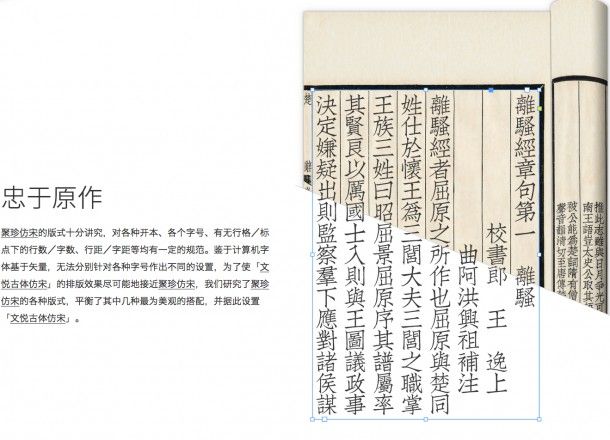 忠于原作
聚珍仿宋的版式十分讲究，对各种开本、各个字号、有无行格／标
点下的行数／字数、行距／字距等均有一定的规范。鉴于计算机字
体基于矢量，无法分别针对各种字号作出不同的设置，为了使「文
悦古体仿宋」的排版效果尽可能地接近聚珍仿宋，我们研究了聚珍
仿宋的各种版式，平衡了其中几种最为美观的搭配，并据此设置
「文悦古体仿宋」。
推此志雖與日月爭光可
南王語豈太史公取其語
被公能爲楚詞隋有僧
聲音韻清切至唐傳
離騷經章句第一　離騷
校書郎　王　逸上
曲阿洪興祖補注
離騷經者屈原之所作也屈原與楚同
姓仕於懷王爲三閭大夫三閭之職掌
王族三姓曰昭屈景屈原序其譜屬率
其賢良以厲國士入則與王圖議政事
決定嫌疑出則監察羣下應對諸侯謀